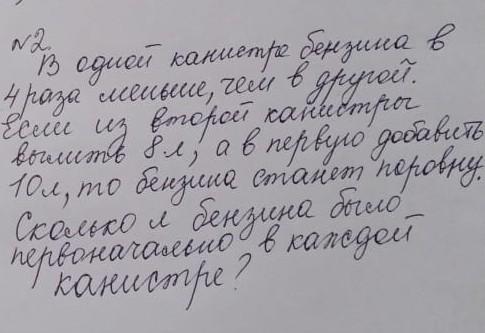 №2.
В одной канистре бензина в
4 раза меньше, чем в другой.
Если из второй канистры
вылить 8л, а в первую добавить
10л, то бензина станет поровну.
Сколько л бензина было
первоначально в каждой
канистре?